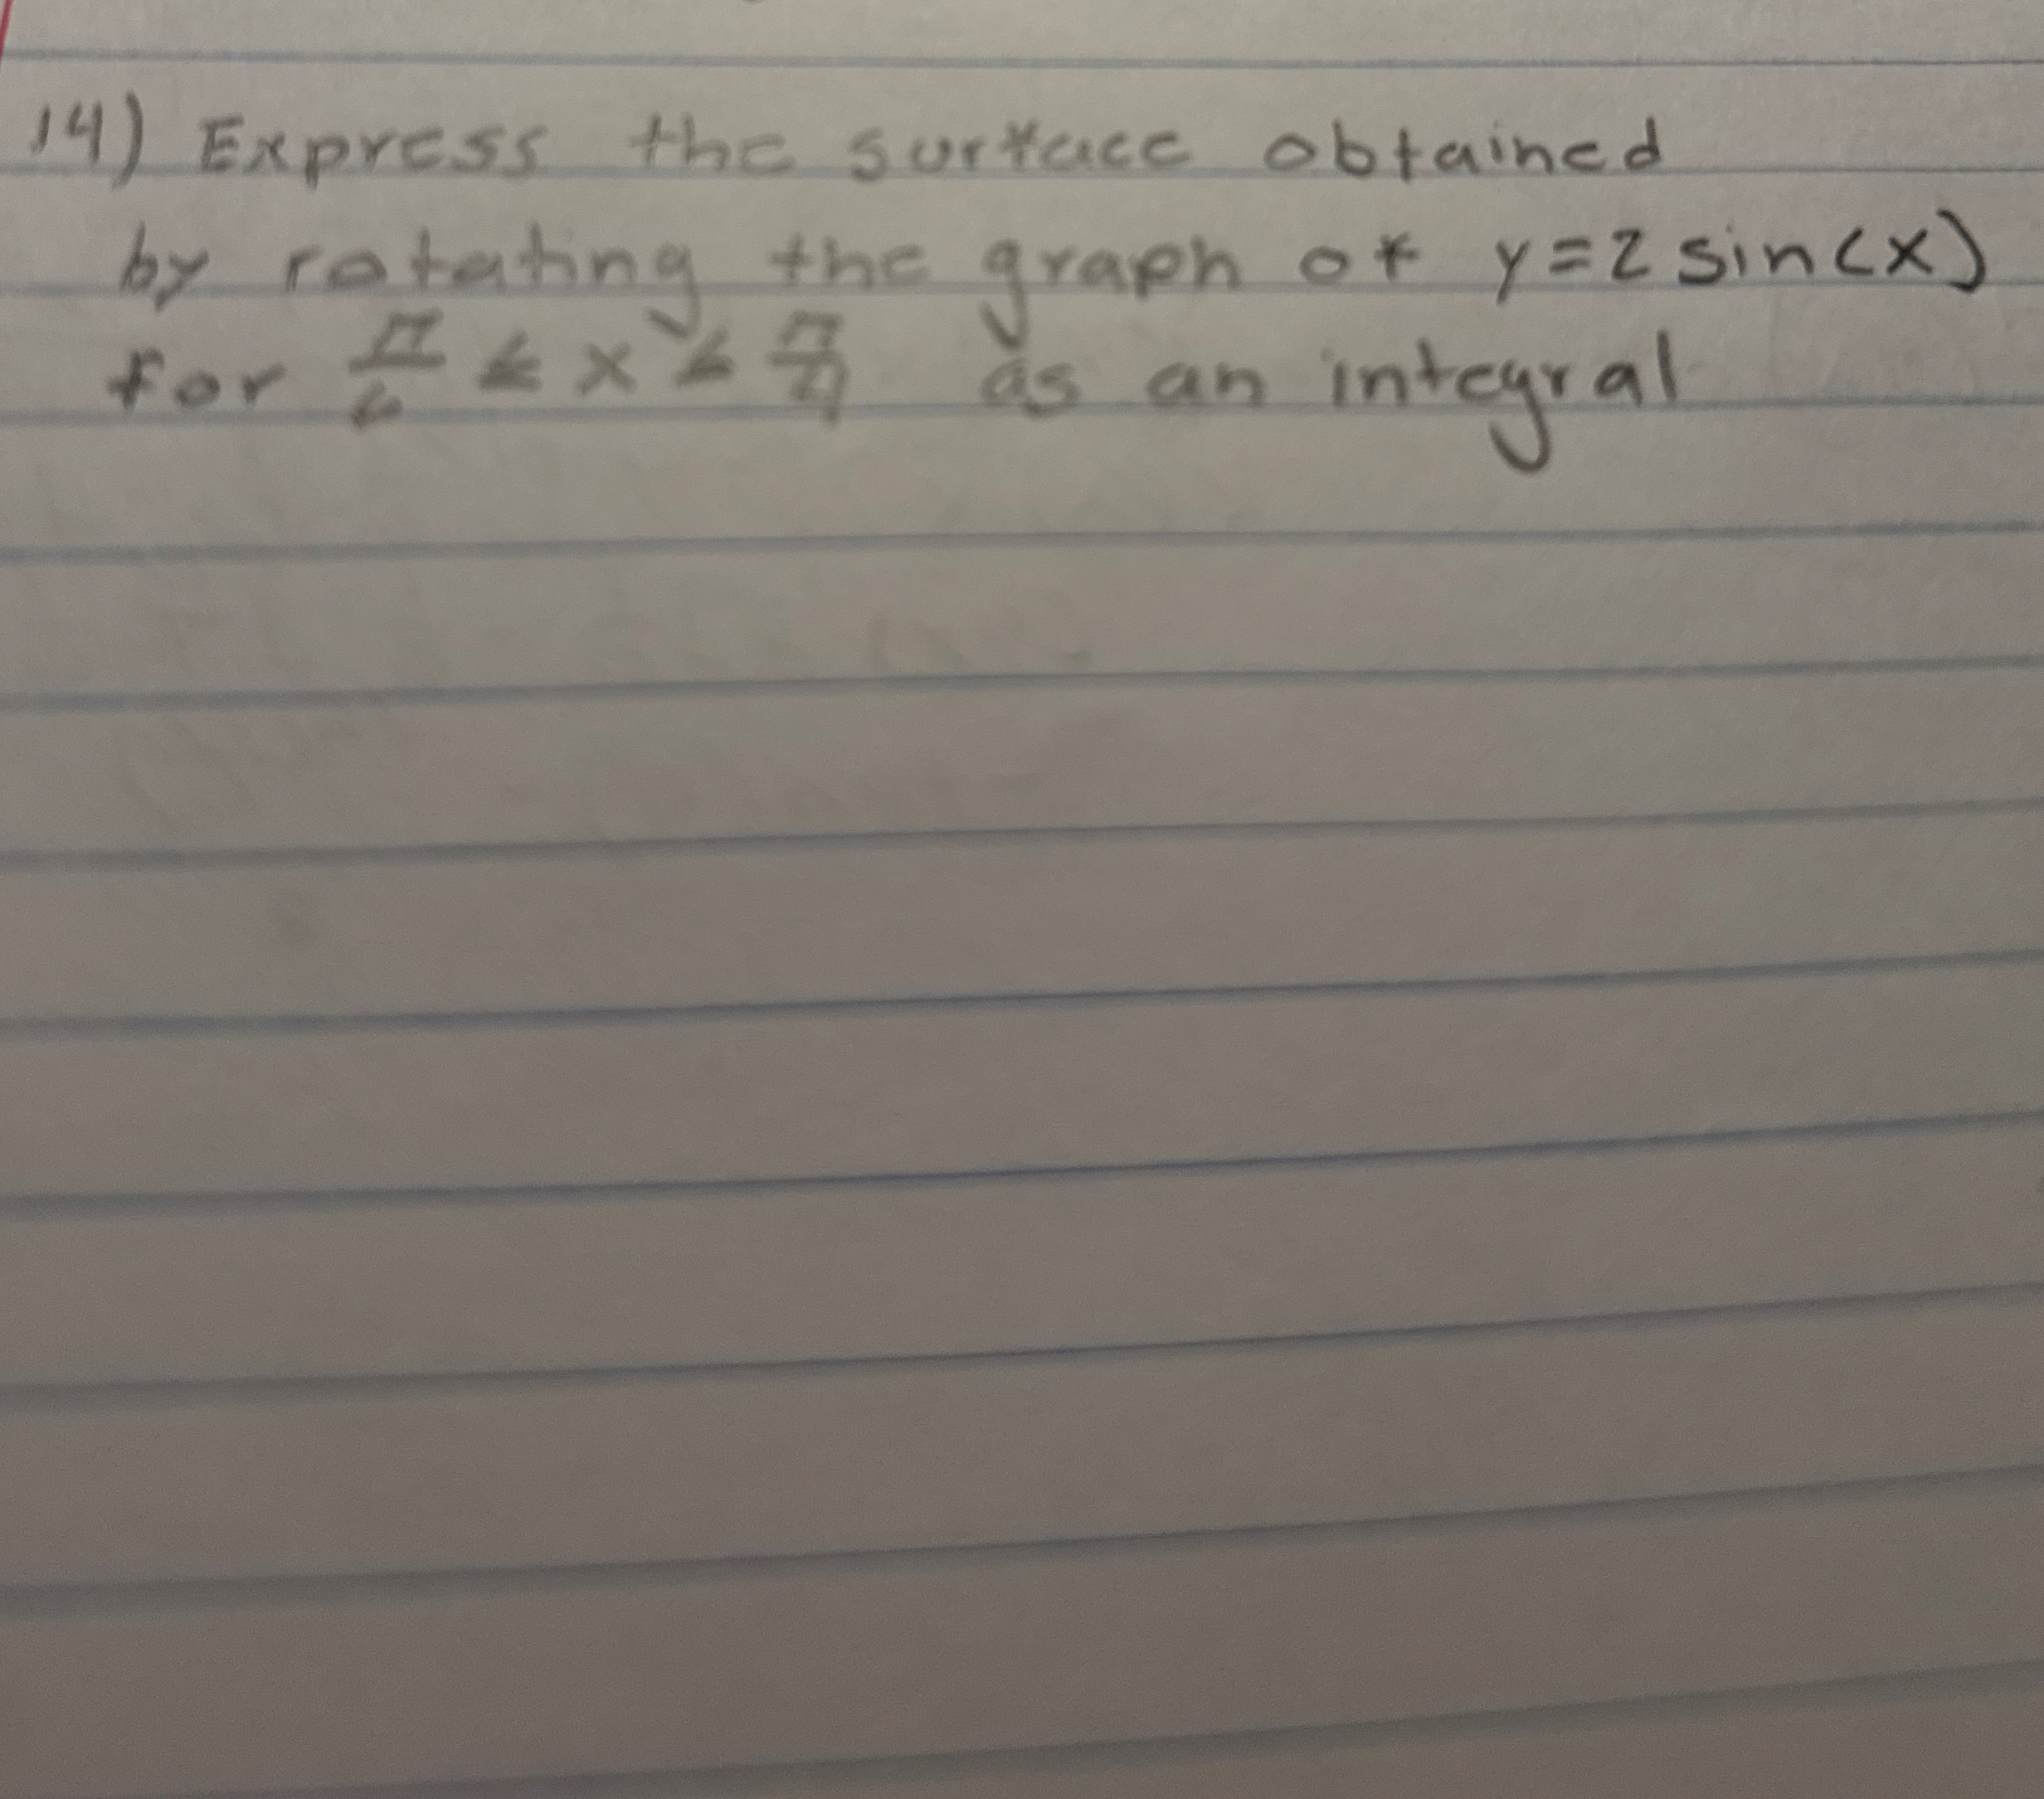 14) Express the surface obtained
by rotating the graph of y=2 sin(x)
for π/6 ≤ x ≤ π/4 as an integral